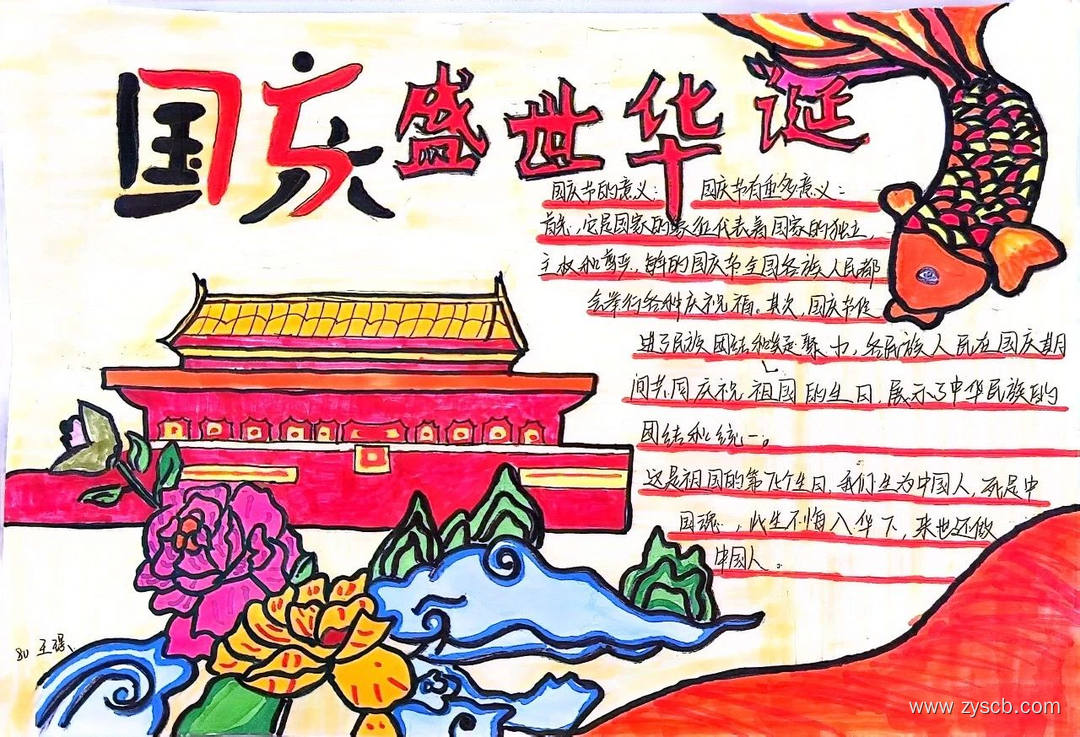 国庆盛世华诞
国庆节的意义： 国庆节有重多意义：
首先，它是国家的象征代表着国家的独立，
主权和尊严，每年的国庆节全国各族人民都
会举行各种庆祝福，其次，国庆节促
进了民族团结和凝聚力，各民族人民在国庆期
间共同庆祝祖国的生日，展示了中华民族的
团结和统一。
这是祖国的第个生日，我们生为中国人，死是中
国魂，此生不悔入华下，来世还做
中国人。
王
www.zyscb.com